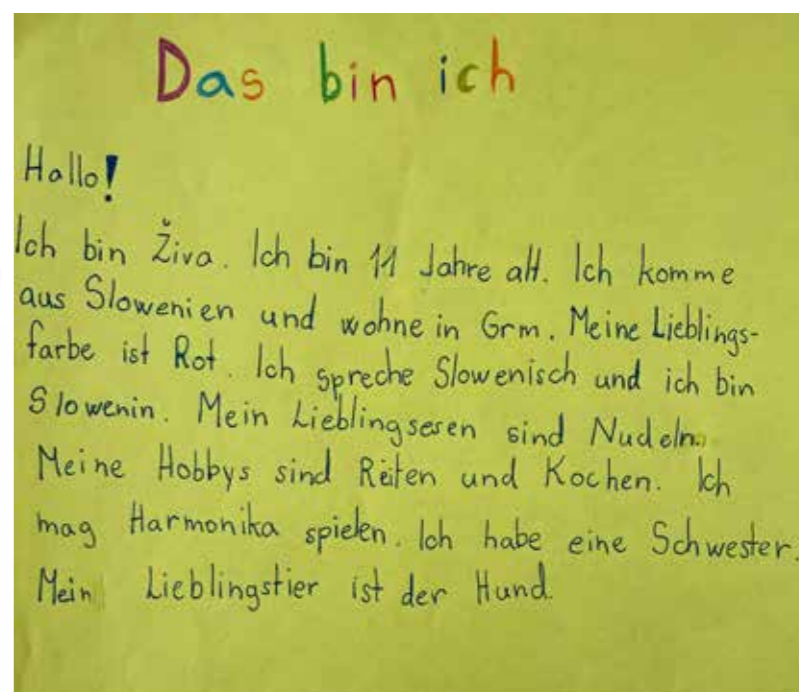 Das bin ich
Hallo!
Ich bin Živa. Ich bin 11 Jahre alt. Ich komme
aus Slowenien und wohne in Grm. Meine Lieblings-
farbe ist Rot. Ich spreche Slowenisch und ich bin
Slowenin. Mein Lieblingsesen sind Nudeln.
Meine Hobbys sind Reiten und Kochen. Ich
mag Harmonika spielen. Ich habe eine Schwester.
Mein Lieblingstier ist der Hund.